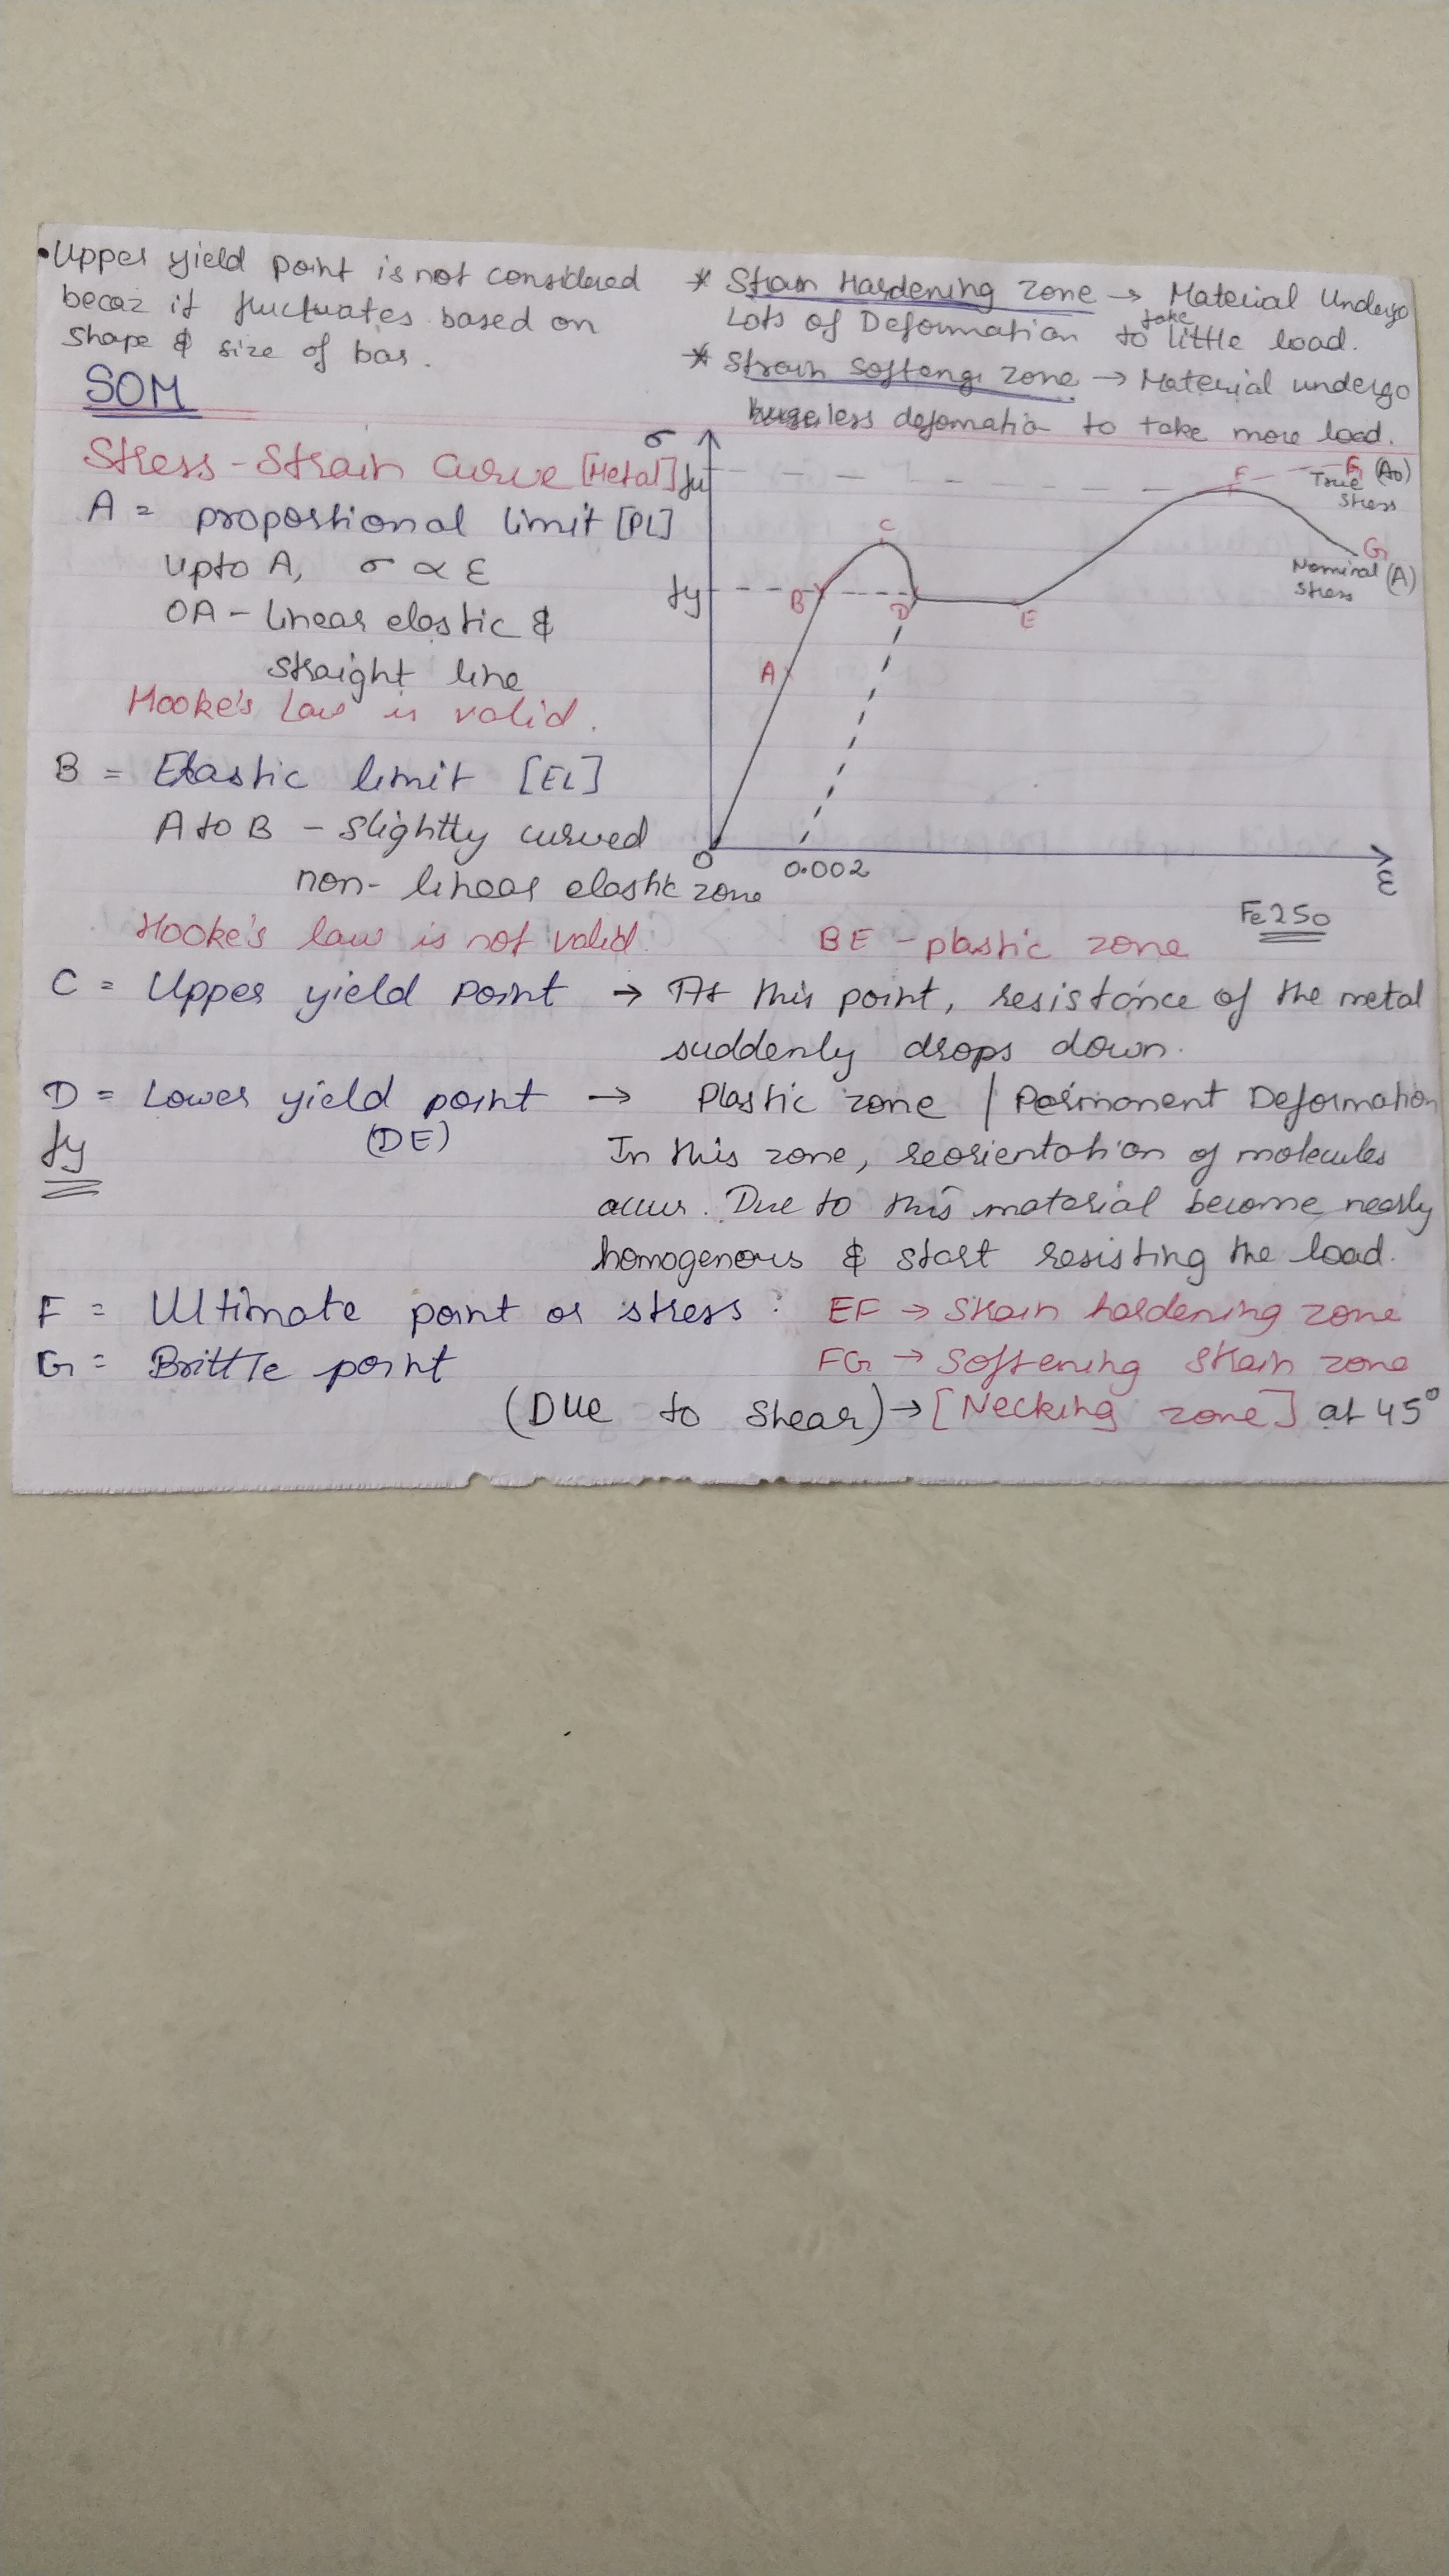 •Upper yield point is not considered
becoz it fluctuates based on
shape & size of bar.
* Strain Hardening zone → Material Undergo
Lots of Deformation to take little load.
* Strain Softeng zone → Material undergo
less defomation to take more load.
SOM
Stress-Strain Curve [Metal]
A = proportional limit [PL]
Upto A, σ ∝ ε
OA - linear elastic &
straight line
Hooke's Law is valid.
σ
fu
fy
A
B
C
D
E
F
G (A0)
True
stress
G
Nominal (A)
stress
O
0.002
ε
Fe250
B = Elastic limit [EL]
A to B - slightly curved
non-linear elastic zone
Hooke's law is not valid.
BE - plastic zone
C = Upper yield point → At this point, resistance of the metal
suddenly drops down.
D = Lower yield point → Plastic zone / Permanent Deformation
fy (DE) In this zone, reorientation of molecules
occur. Due to this material become nearly
homogenous & start resisting the load.
F = Ultimate point or stress : EF → Strain hardening zone
G = Brittle point FG → Softening strain zone
(Due to shear) → [Necking zone] at 45°